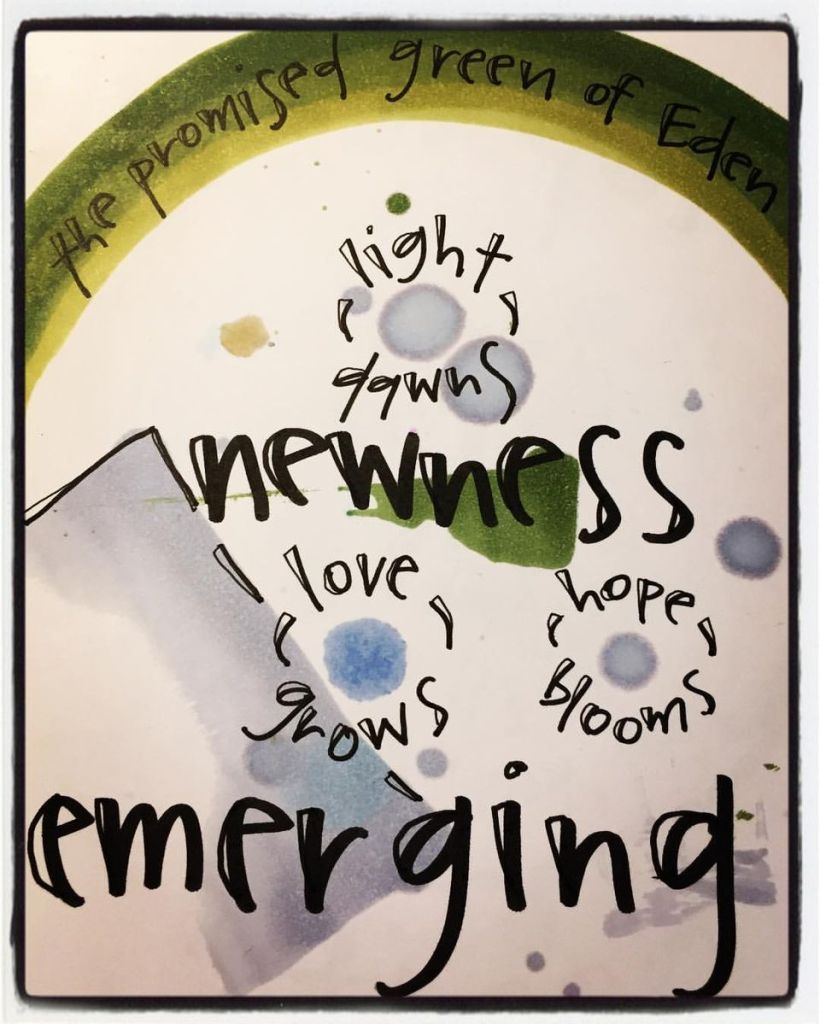 the promised green of Eden
light
dawns
newness
love
grows
hope
blooms
emerging